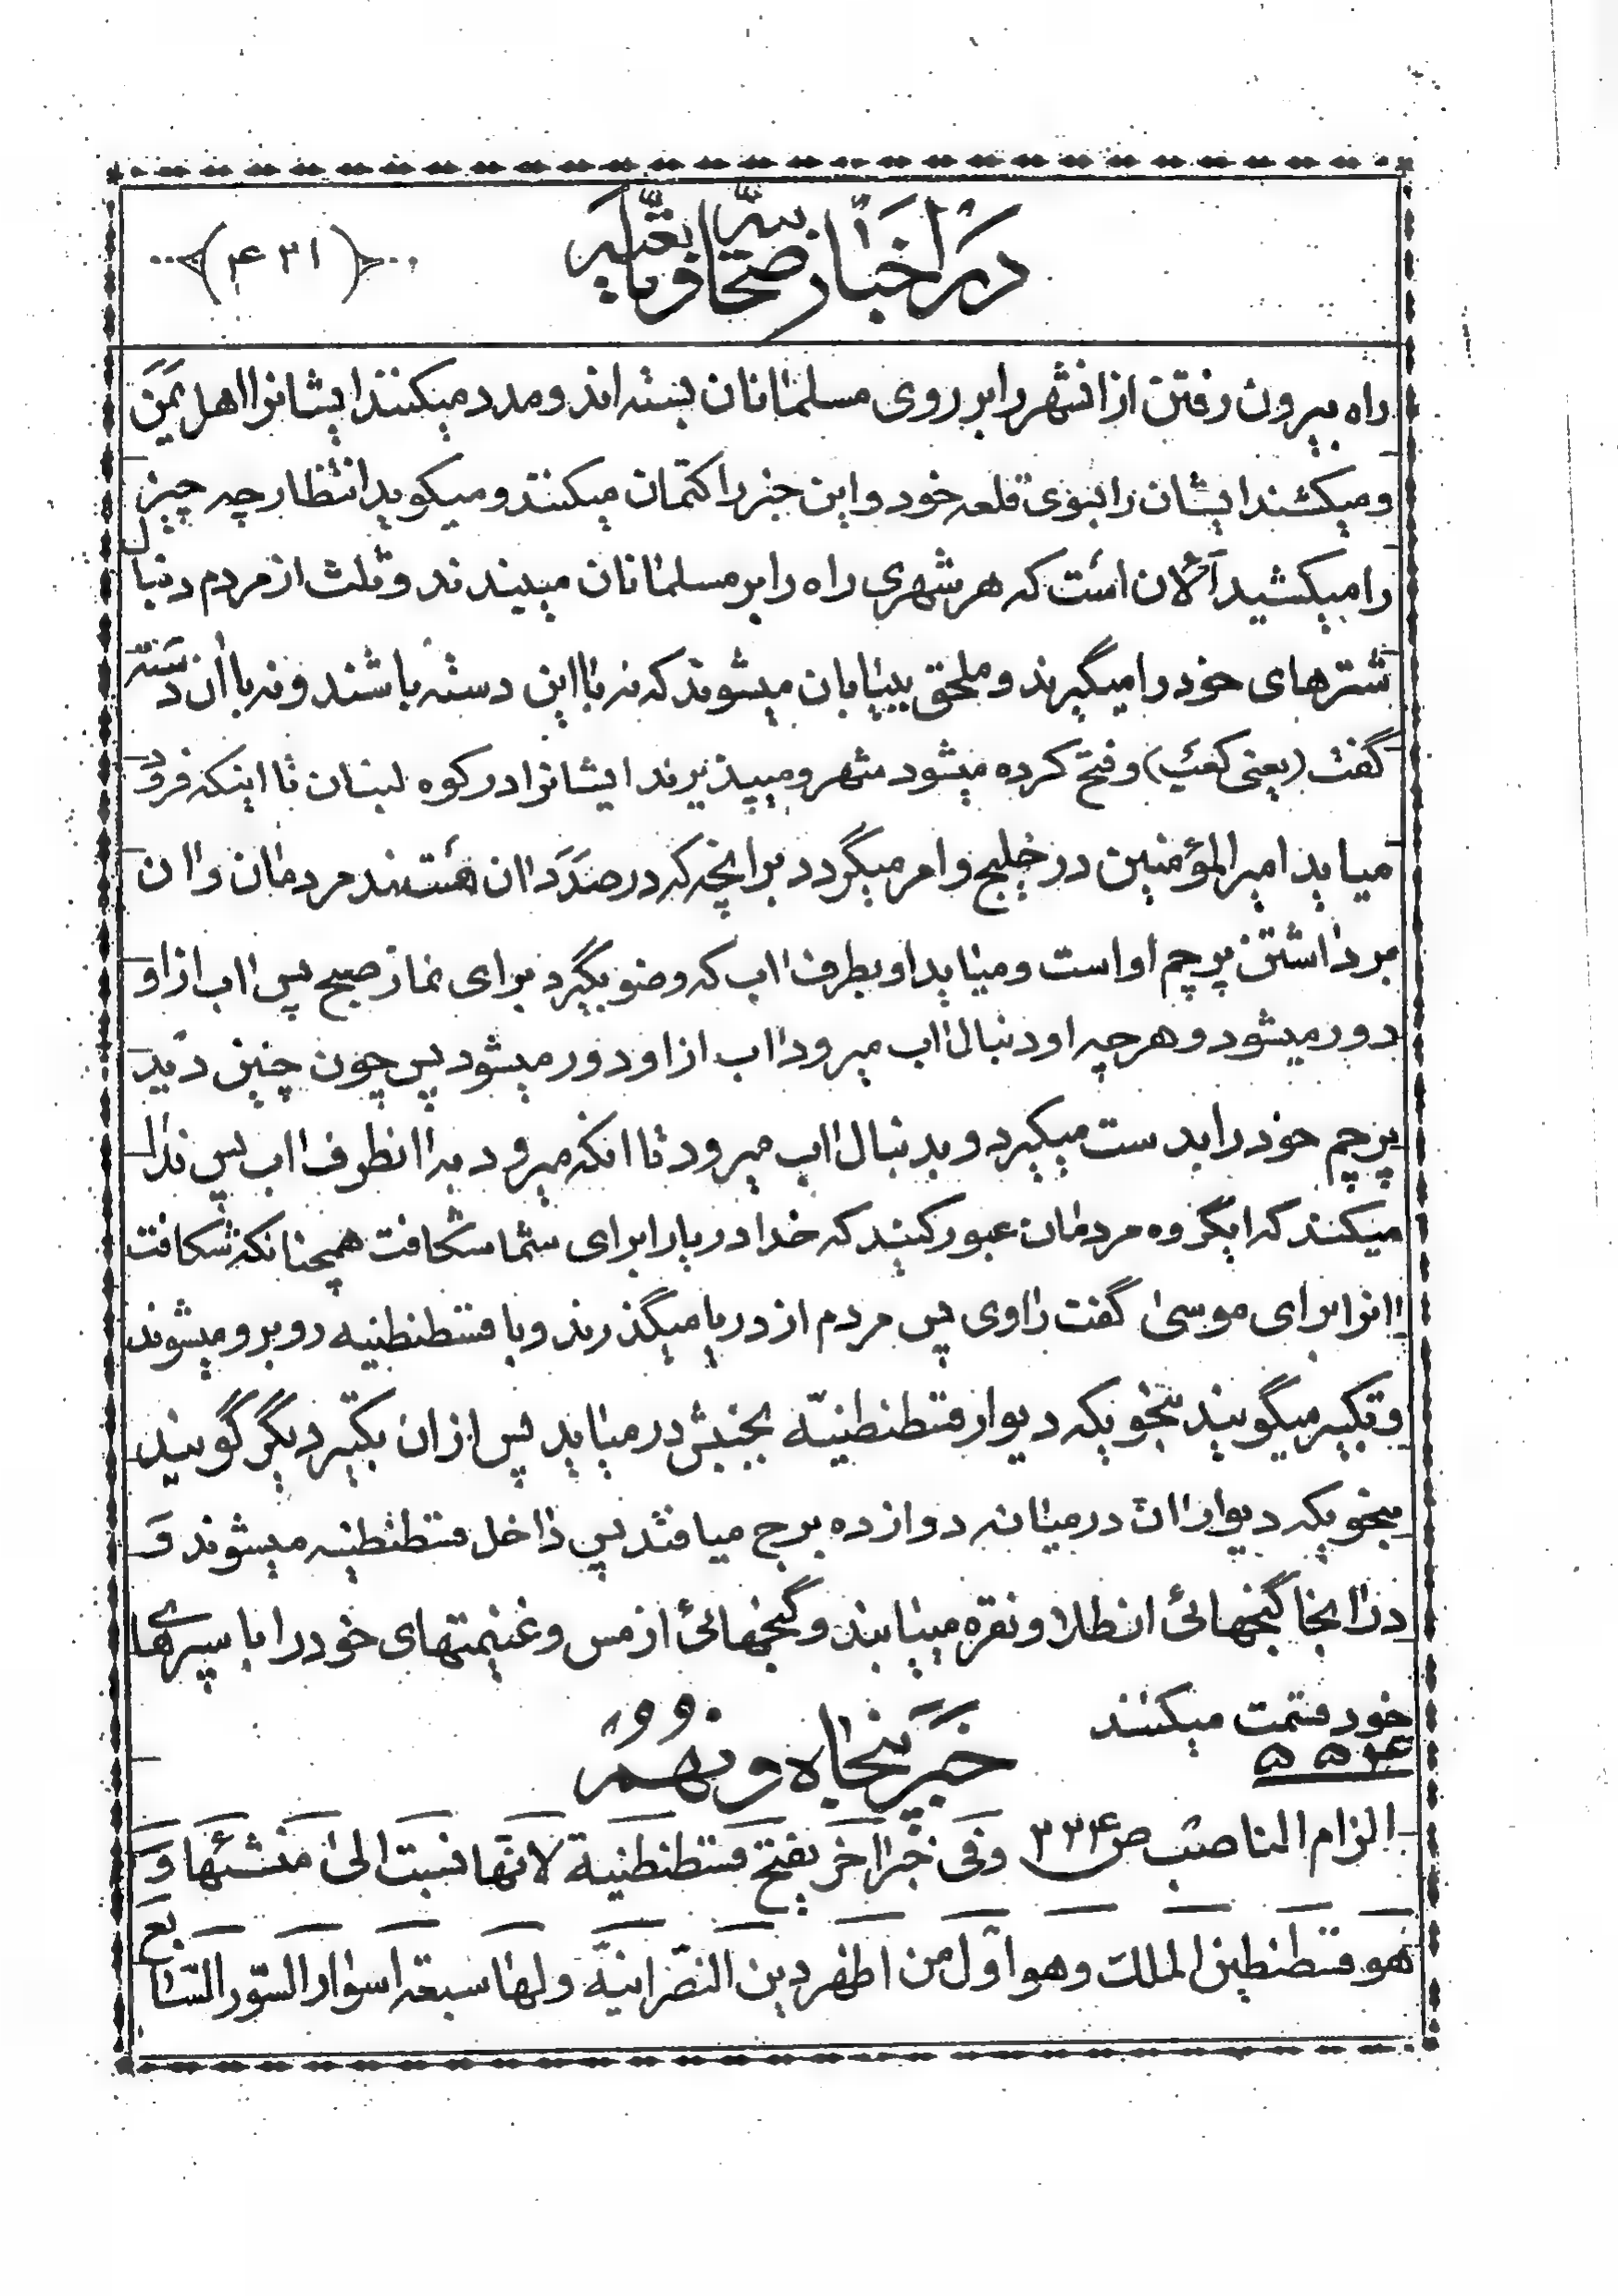 در اخبار صحابه و تابعین
(۴۳۱)
راه بیرون رفتن از انشهر را بر روی مسلمانان بسته اند و مدد میکنند ایشانرا اهل یمن
و میکشند ایشان را بسوی قلعه خود و این خبر را کتمان میکنند و میگوید انتظار چه چیز
را میکشید الآن است که هر شهری راه را بر مسلمانان میبندند و ثلث از مردم دنبال
شترهای خود را میگیرند و ملحق به بیابان میشوند که نه با این دسته باشند و نه با آن دسته
گفت (یعنی کعب) و فتح کرده میشود شهر و میپذیرند ایشانرا در کوه لبنان تا اینکه فرود
میاید امیر المؤمنین در خلیج و امر میگردد بر آنچه که در صدد آن هستند مردمان و آن
برداشتن پرچم او است و میاید او بطرف آب که وضو بگیرد برای نماز صبح پس آب از او
دور میشود و هرچه او دنبال آب میرود آب از او دور میشود پس چون چنین دید
پرچم خود را بدست میگیرد و بدنبال آب میرود تا آنکه میرود به آنطرف آب پس ندا
میکند که ایگروه مردمان عبور کنید که خدا دریا را برای شما شکافت همچنانکه شکافت
آنرا برای موسی گفت راوی پس مردم از دریا میگذرند و با قسطنطنیه روبرو میشوند
و تکبیر میگویند بنحویکه دیوار قسطنطنیّه بجنبش در میاید پس از آن تکبیر دیگر گویند
بنحویکه دیوار آن در میانه دوازده برج میافتد پس داخل قسطنطنیه میشوند و
در آنجا گنجهائی از طلا و نقره مییابند و گنجهائی از مس و غنیمتهای خود را با سپرهای
خود قسمت میکنند
خبر پنجاه و نهم
۵۵۴
الزام الناصب ص ۲۲۴ و فی خبر آخر یفتح قسطنطنیة لانّها نسبت الی منشئها و
هو قسطنطین الملک و هو اوّل من اظهر دین النصرانیّة و لها سبعة اسوار السّور السّابع